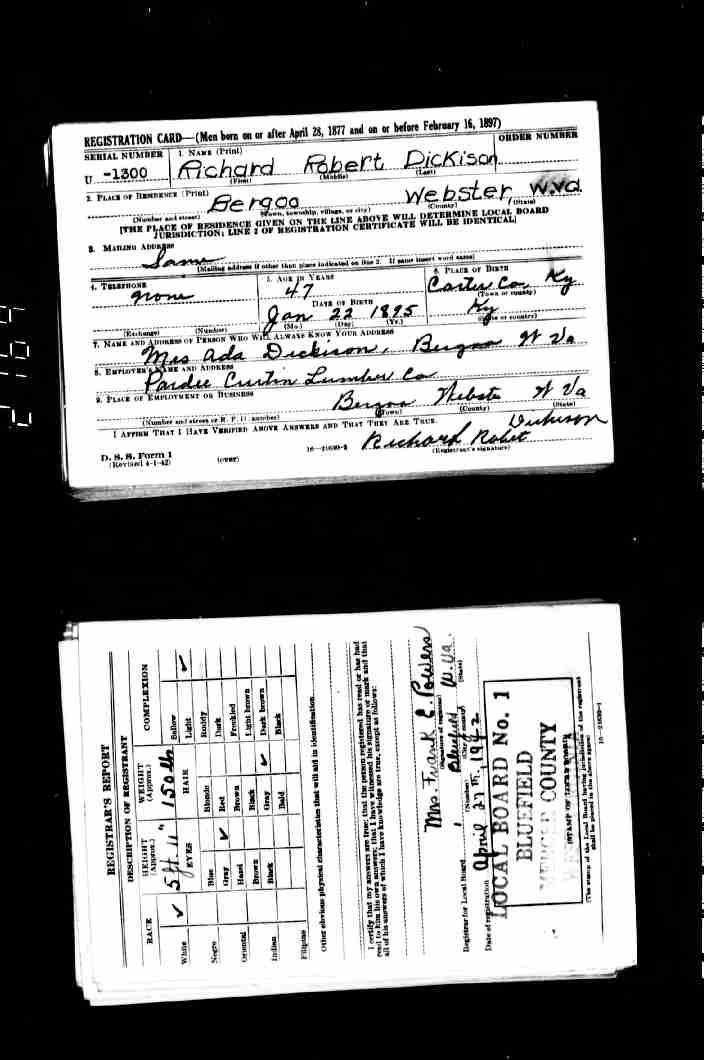 REGISTRATION CARD—(Men born on or after April 28, 1877 and on or before February 16, 1897)
SERIAL NUMBER 1. NAME (Print) ORDER NUMBER
U -1300 Richard Robert Dickison
(First) (Middle) (Last)
2. PLACE OF RESIDENCE (Print)
Bergoo Webster, W.Va.
(Number and street) (Town, township, village, or city) (County) (State)
[THE PLACE OF RESIDENCE GIVEN ON THE LINE ABOVE WILL DETERMINE LOCAL BOARD
JURISDICTION; LINE 2 OF REGISTRATION CERTIFICATE WILL BE IDENTICAL]
3. MAILING ADDRESS
Same
[Mailing address if other than place indicated on line 2. If same insert word same]
4. TELEPHONE 5. AGE IN YEARS 6. PLACE OF BIRTH
None 47 Carter Co. Ky
DATE OF BIRTH (Town or county)
Jan 22 1895 Ky
(Exchange) (Number) (Mo.) (Day) (Yr.) (State or country)
7. NAME AND ADDRESS OF PERSON WHO WILL ALWAYS KNOW YOUR ADDRESS
Mrs Ada Dickison, Bergoo W Va
8. EMPLOYER'S NAME AND ADDRESS
Pardee Curtin Lumber Co
9. PLACE OF EMPLOYMENT OR BUSINESS
Bergoo Webster W Va
(Number and street or R. F. D. number) (Town) (County) (State)
I AFFIRM THAT I HAVE VERIFIED ABOVE ANSWERS AND THAT THEY ARE TRUE.
Richard Robert Dickison
D. S. S. Form 1
(Revised 4-1-42) (over) 16—21630-2 (Registrant's signature)
REGISTRAR'S REPORT
DESCRIPTION OF REGISTRANT
RACE HEIGHT (Approx.) WEIGHT (Approx.) COMPLEXION
✓ 5 ft 11" 150 lb
White EYES HAIR Sallow
Light ✓
Negro Blue Blonde Ruddy
Gray ✓ Red Dark
Oriental Hazel Brown Freckled
Brown Black Light brown
Indian Black Gray ✓ Dark brown
Bald Black
Filipino
Other obvious physical characteristics that will aid in identification
I certify that my answers are true; that the person registered has read or has had
read to him his own answers; that I have witnessed his signature or mark and that
all of his answers of which I have knowledge are true, except as follows:
Mrs. Frank E. Powers
(Signature of registrar)
Registrar for Local Board 1 Bluefield W. Va.
(Number) (City or county) (State)
Date of registration April 27th, 1942
LOCAL BOARD No. 1
BLUEFIELD
MERCER COUNTY
(STAMP OF LOCAL BOARD)
(The stamp of the Local Board having jurisdiction of the registrant
shall be placed in the above space)
16—21630-1